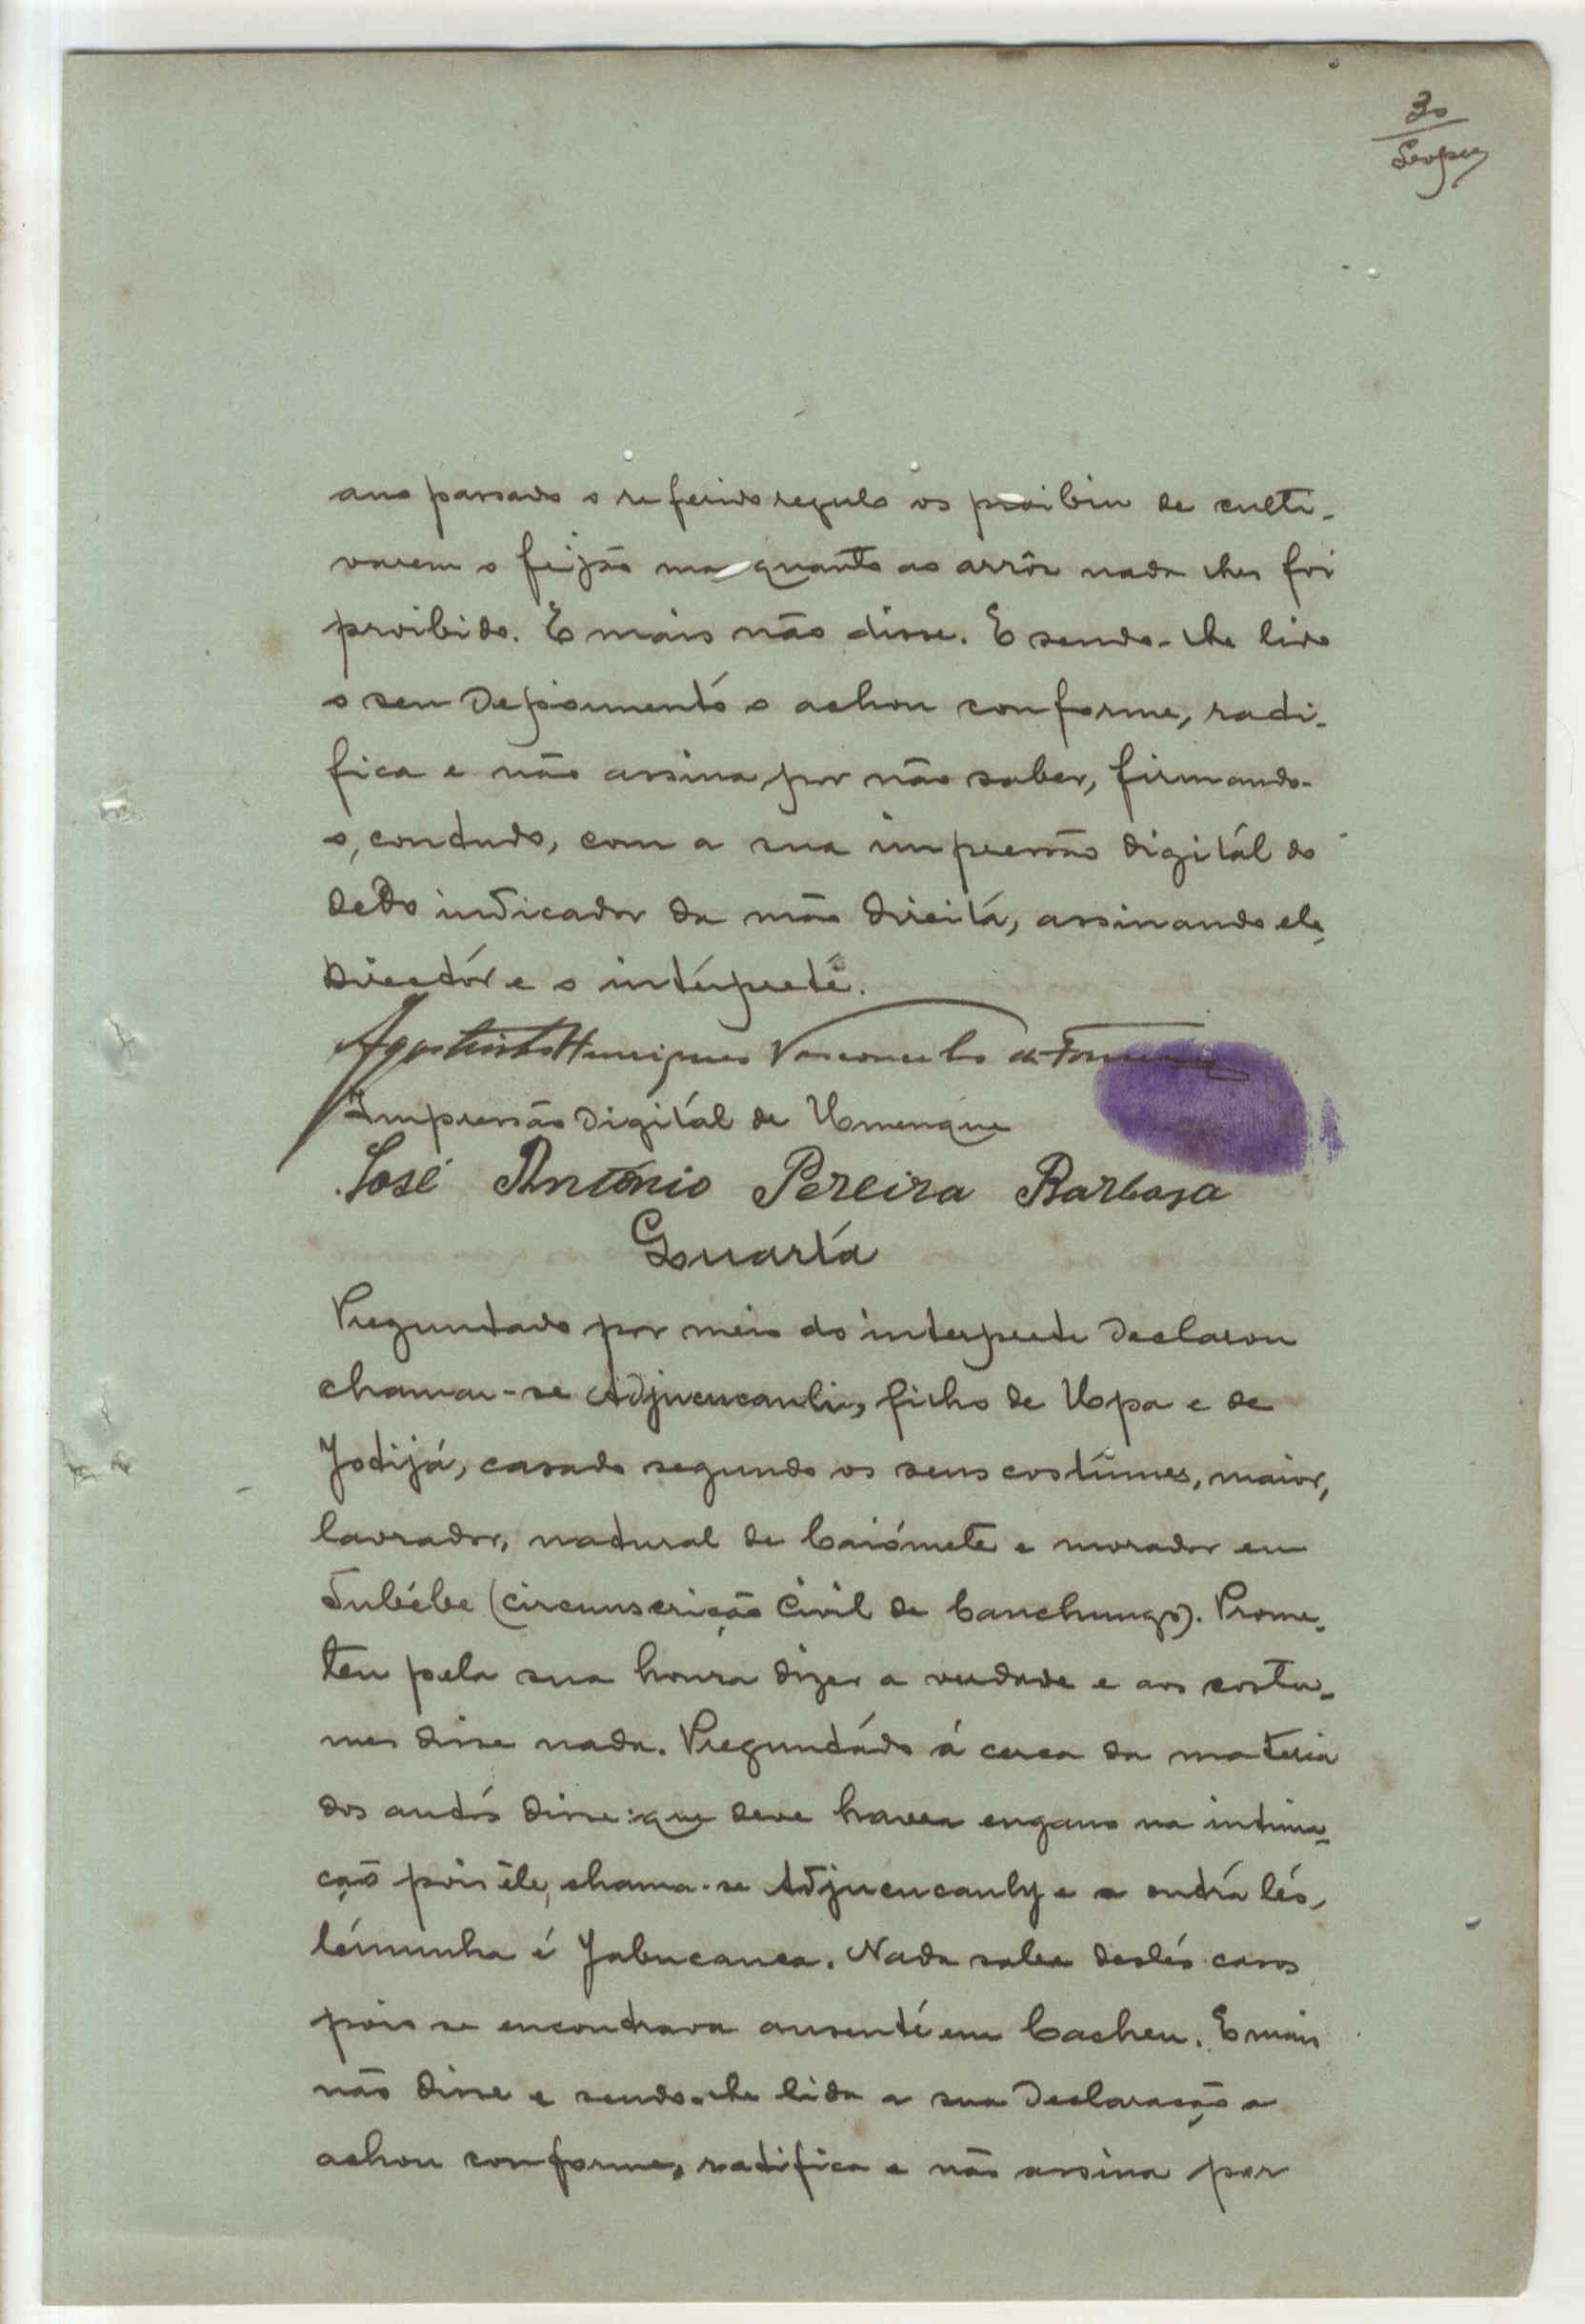 30
ano passado o referido regulo os proibiu de culti-
varem o feijão mas quanto ao arrôz nada lhes foi
proibido. E mais não disse. E sendo-lhe lido
o seu depoimento o achou conforme, radi-
fica e não assina por não saber, firmando-
o, contudo, com a sua impressão digitál do
dedo indicador da mão direita, assinando ele,
Directór e o intérprete.
Agostinho Henriques Vasconcelos da
Impressão digitál de Umengue
José António Pereira Barbosa
Quarta
Preguntado por meio do interprete declarou
chamar-se Adjucucauli, filho de Upa e de
Jodijá, casado segundo os seus costumes, maior,
lavrador, natural de Caiómete e morador em
Tubébe (circunscrição Civil de Canchungo). Prome-
teu pela sua honra dizer a verdade e aos costu-
mes disse nada. Preguntádo á cerca da materia
dos autos disse: que deve haver engano na intima-
ção pois êle, chama-se Adjucucauly e a outra tes-
temunha é Jabucanca. Nada sabe destes casos
pois se encontrava ausente em Cacheu. E mais
não disse e sendo-lhe lida a sua declaração a
achou conforme, ratifica e não assina por